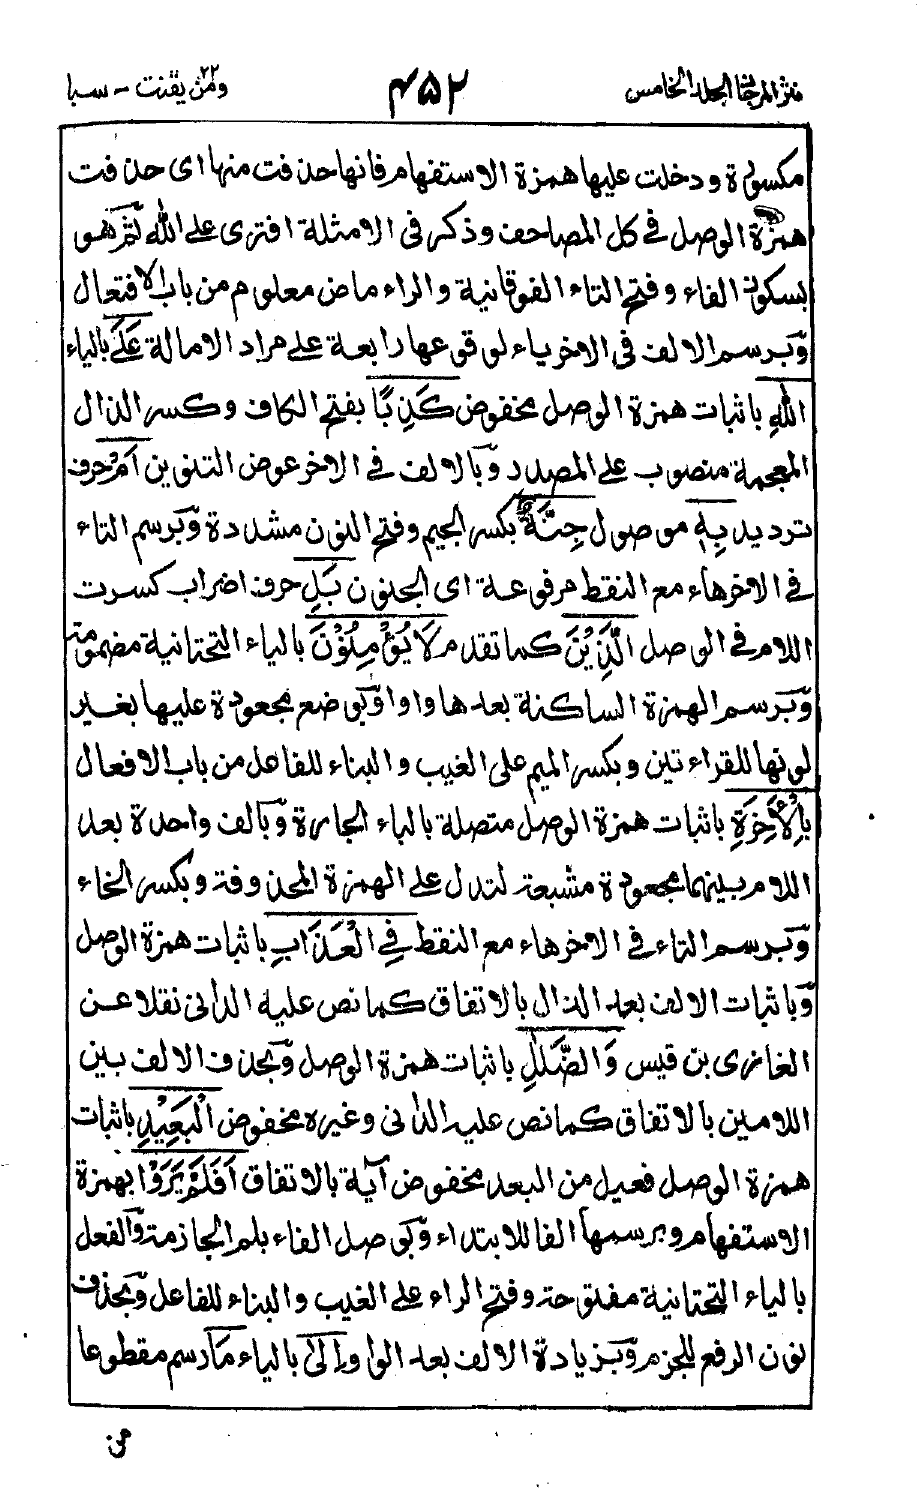 نثر المرجان الجلد الخامس
٤٥٢
ومن يقنت ٢٢ - سبا
مكسورة ودخلت عليها همزة الاستفهام فانها حذفت منها اى حذفت
همزة الوصل فى كل المصاحف وذكر فى الامثلة افترى على الله ثم هو
بسكون الفاء وفتح التاء الفوقانية والراء ماض معلوم من باب الافتعال
وبرسم الالف فى الاخر ياء لوقوعها رابعة على مراد الامالة عَلَى بالياء
اللهِ باثبات همزة الوصل مخفوض كَذِبًا بفتح الكاف وكسر الذال
المعجمة منصوب على المصدر وبالالف فى الاخر عوض التنوين اَمْ حرف
ترديد بِهٖ موصول جِنَّةٌ بكسر الجيم وفتح النون مشددة وبرسم التاء
فى الاخر هاء مع النقط مرفوعة اى الجنون بَلِ حرف اضراب كسرت
اللام فى الوصل الَّذِيْنَ كما تقدم لَا يُؤْمِنُوْنَ بالياء التحتانية مضمومة
وبرسم الهمزة الساكنة بعدها واوا وبوضع مجعودة عليها بغير
لونها للقراءتين وبكسر الميم على الغيب والبناء للفاعل من باب الافعال
بِالْاٰخِرَةِ باثبات همزة الوصل متصلة بالباء الجارة وبالف واحدة بعد
اللام بينهما مجعودة مشبعة لتدل على الهمزة المحذوفة وبكسر الخاء
وبرسم التاء فى الاخر هاء مع النقط فِى الْعَذَابِ باثبات همزة الوصل
وباثبات الالف بعد الذال بالاتفاق كما نص عليه الدانى نقلا عن
الغازى بن قيس وَالضَّلٰلِ باثبات همزة الوصل وبحذف الالف بين
اللامين بالاتفاق كما نص عليه الدانى وغيره مخفوض الْبَعِيْدِ باثبات
همزة الوصل فعيل من البعد مخفوض آية بالاتفاق اَفَلَمْ يَرَوْا بهمزة
الاستفهام وبرسمها الفا للابتداء وبوصل الفاء بلم الجازمة والفعل
بالياء التحتانية مفتوحة وفتح الراء على الغيب والبناء للفاعل وبحذف
نون الرفع للجزم وبزيادة الالف بعد الواو اِلٰى بالياء مَا رسم مقطوعا
من